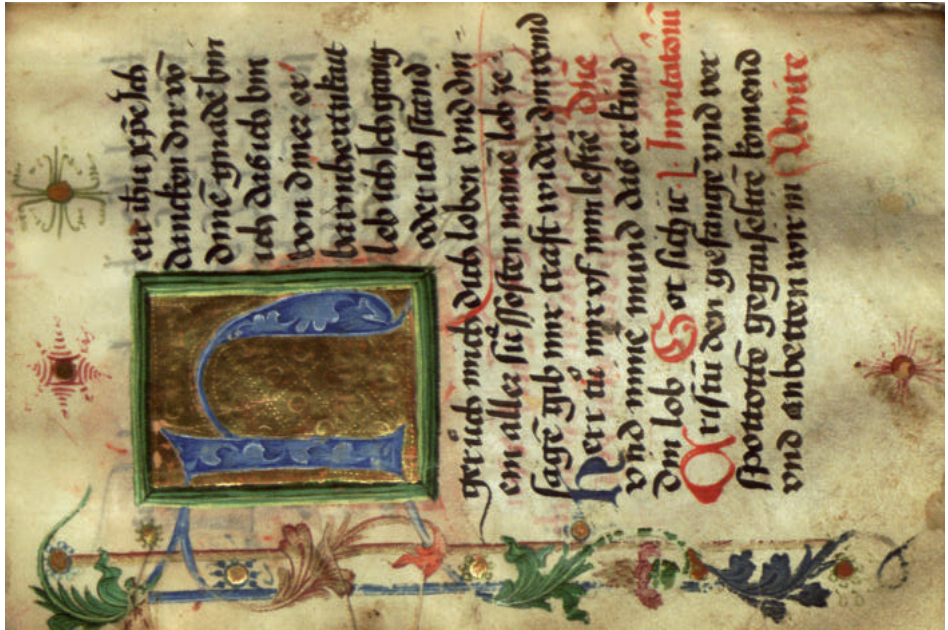 err ih̄u xp̄e Ich
dancken dir vō
dinē gnadē bin
ich das ich bin
von diner er
barmhertzikait
leb ich Ich gang
oder ich stand
gerůch mich dich loben vnd din
em aller sůssosten namē lob ze
sagē gib mir craft wider din vend
herr tů mir vf min lefftzē Dn̄e
vnd minē mund das er künd
din lob Got sich ıc̄ Invitatoriū
Cristū den gefangē vnd ver
spottottē gegaiseltē komend
vnd anbetten wir in Venite